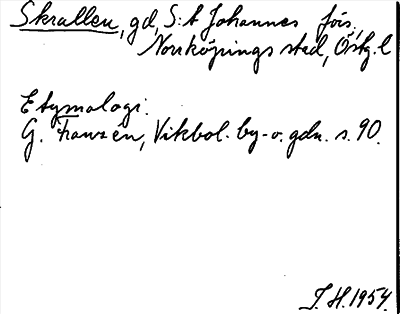 Skrallen, gd, S:t Johannes förs.,
Norrköpings stad, Östg. l
Etymologi.
G. Franzén, Vikbol. by- o. gdn. s. 90.
J. H. 1954.